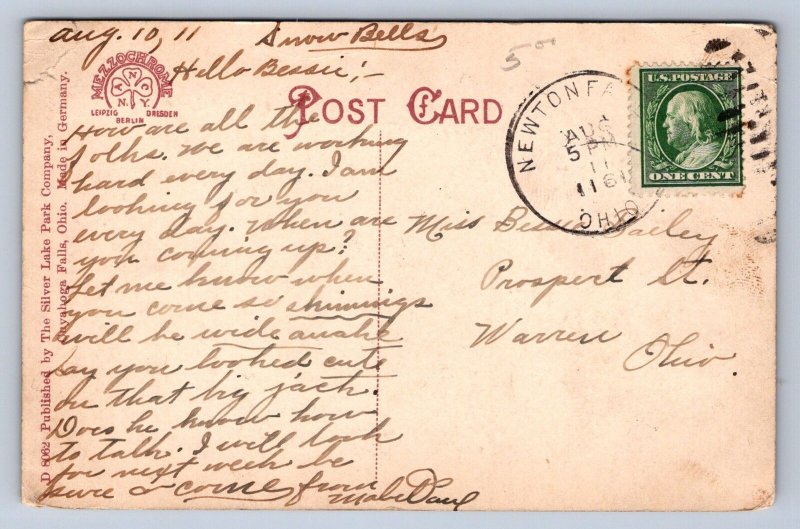 Aug. 10, 11 Snow Bells
5
Hello Bessie;-
MEZZOCHROME
A N C
N. Y.
LEIPZIG DRESDEN
BERLIN
POST CARD
NEWTON FA
AUG
5 PM
11
OHIO
U.S. POSTAGE
ONE CENT
How are all the
folks. We are working
hard every day. I am
looking for you
every day. When are
you coming up?
Let me know when
you come so
will be wide awake
Say you looked cute
on that big jack.
Does he know how
to talk. I will look
for next week be
sure & come from
Miss Bessie Bailey
Prospect St.
Warren
Ohio.
D 8062 Published by The Silver Lake Park Company,
Cuyahoga Falls, Ohio. Made in Germany.